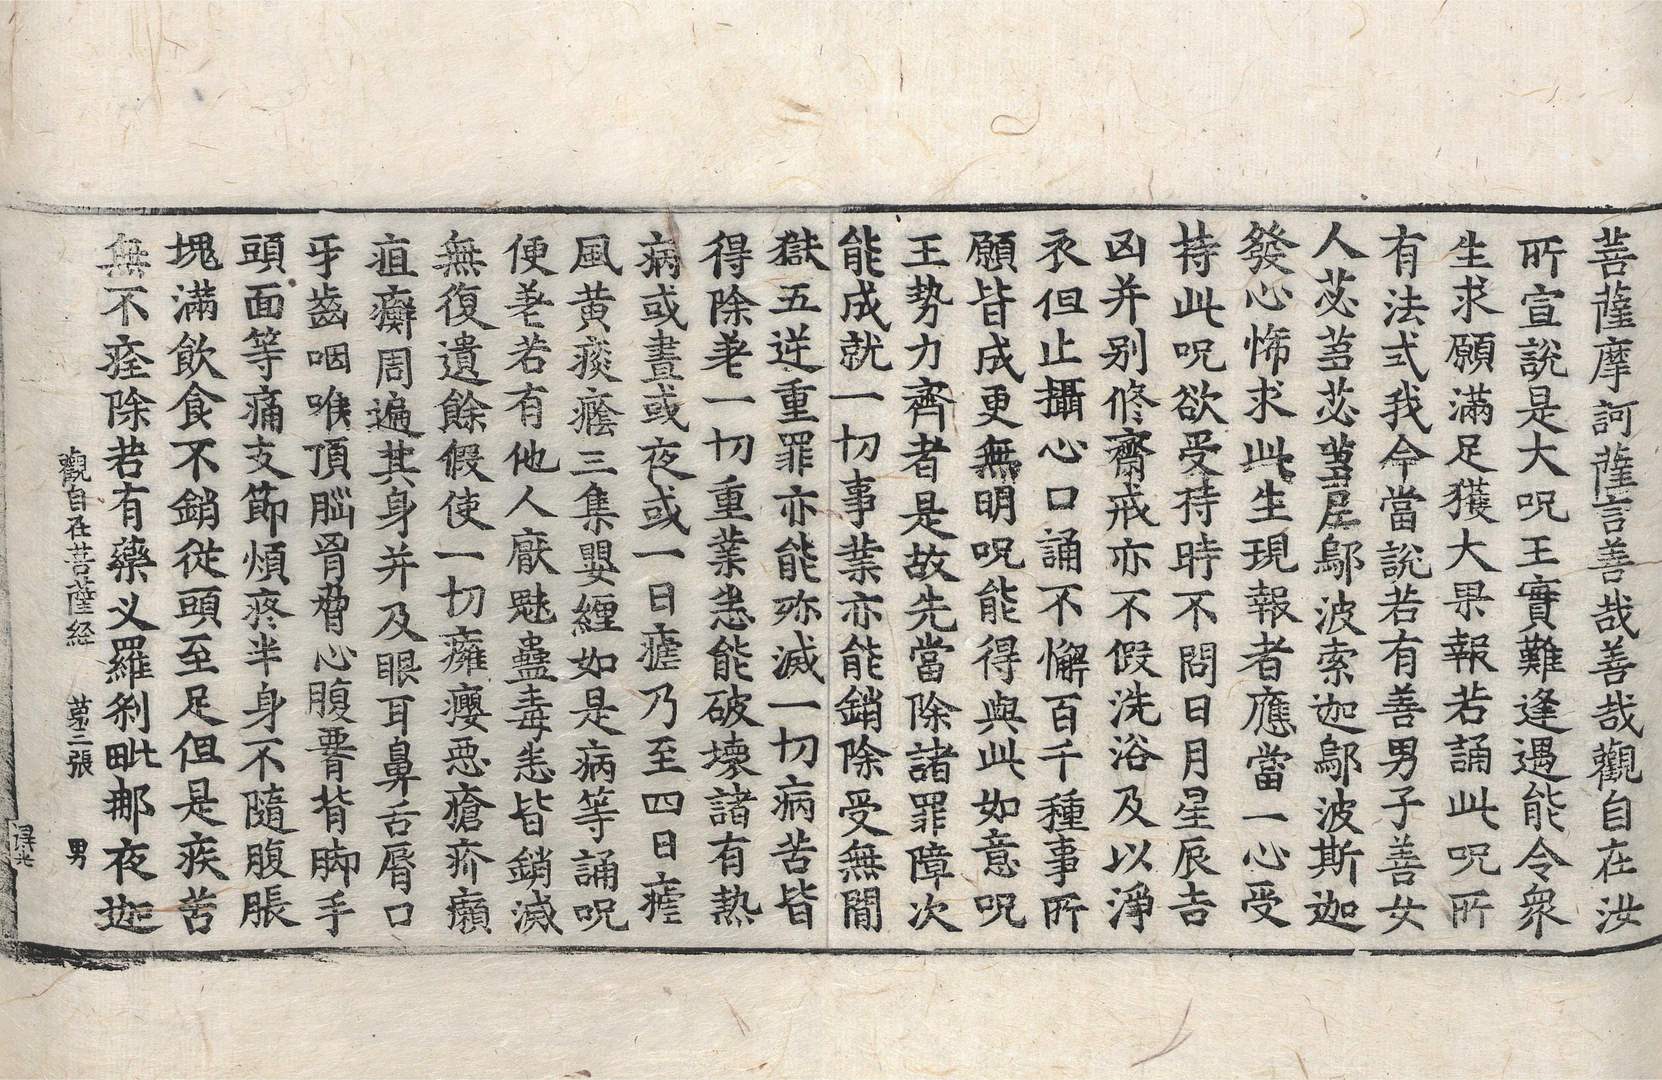 菩薩摩訶薩言善哉善哉觀自在汝
所宣說是大呪王實難逢遇能令衆
生求願滿足獲大果報若誦此呪所
有法式我今當說若有善男子善女
人苾芻苾蒭尼鄔波索迦鄔波斯迦
發心怖求此生現報者應當一心受
持此呪欲受持時不問日月星辰吉
凶并別俢齋戒亦不假洗浴及以淨
衣但止攝心口誦不懈百千種事所
願皆成更無明呪能得與此如意呪
王勢力齊者是故先當除諸罪障次
能成就一切事業亦能銷除受無閒
獄五逆重罪亦能殄滅一切病苦皆
得除差一切重業悉能破壞諸有熱
病或晝或夜或一日瘧乃至四日瘧
風黄痰癊三集嬰纏如是病等誦呪
便差若有他人厭魅蠱毒悉皆銷滅
無復遺餘假使一切癰癭惡瘡疥癩
疽癬周遍其身并及眼耳鼻舌脣口
牙齒咽喉頂腦胷脅心腹𦝫背脚手
頭面等痛支節煩疼半身不隨腹脹
塊滿飲食不銷從頭至足但是疾苦
無不痊除若有藥叉羅刹毗那夜迦
觀自在菩薩經 苐二張 男